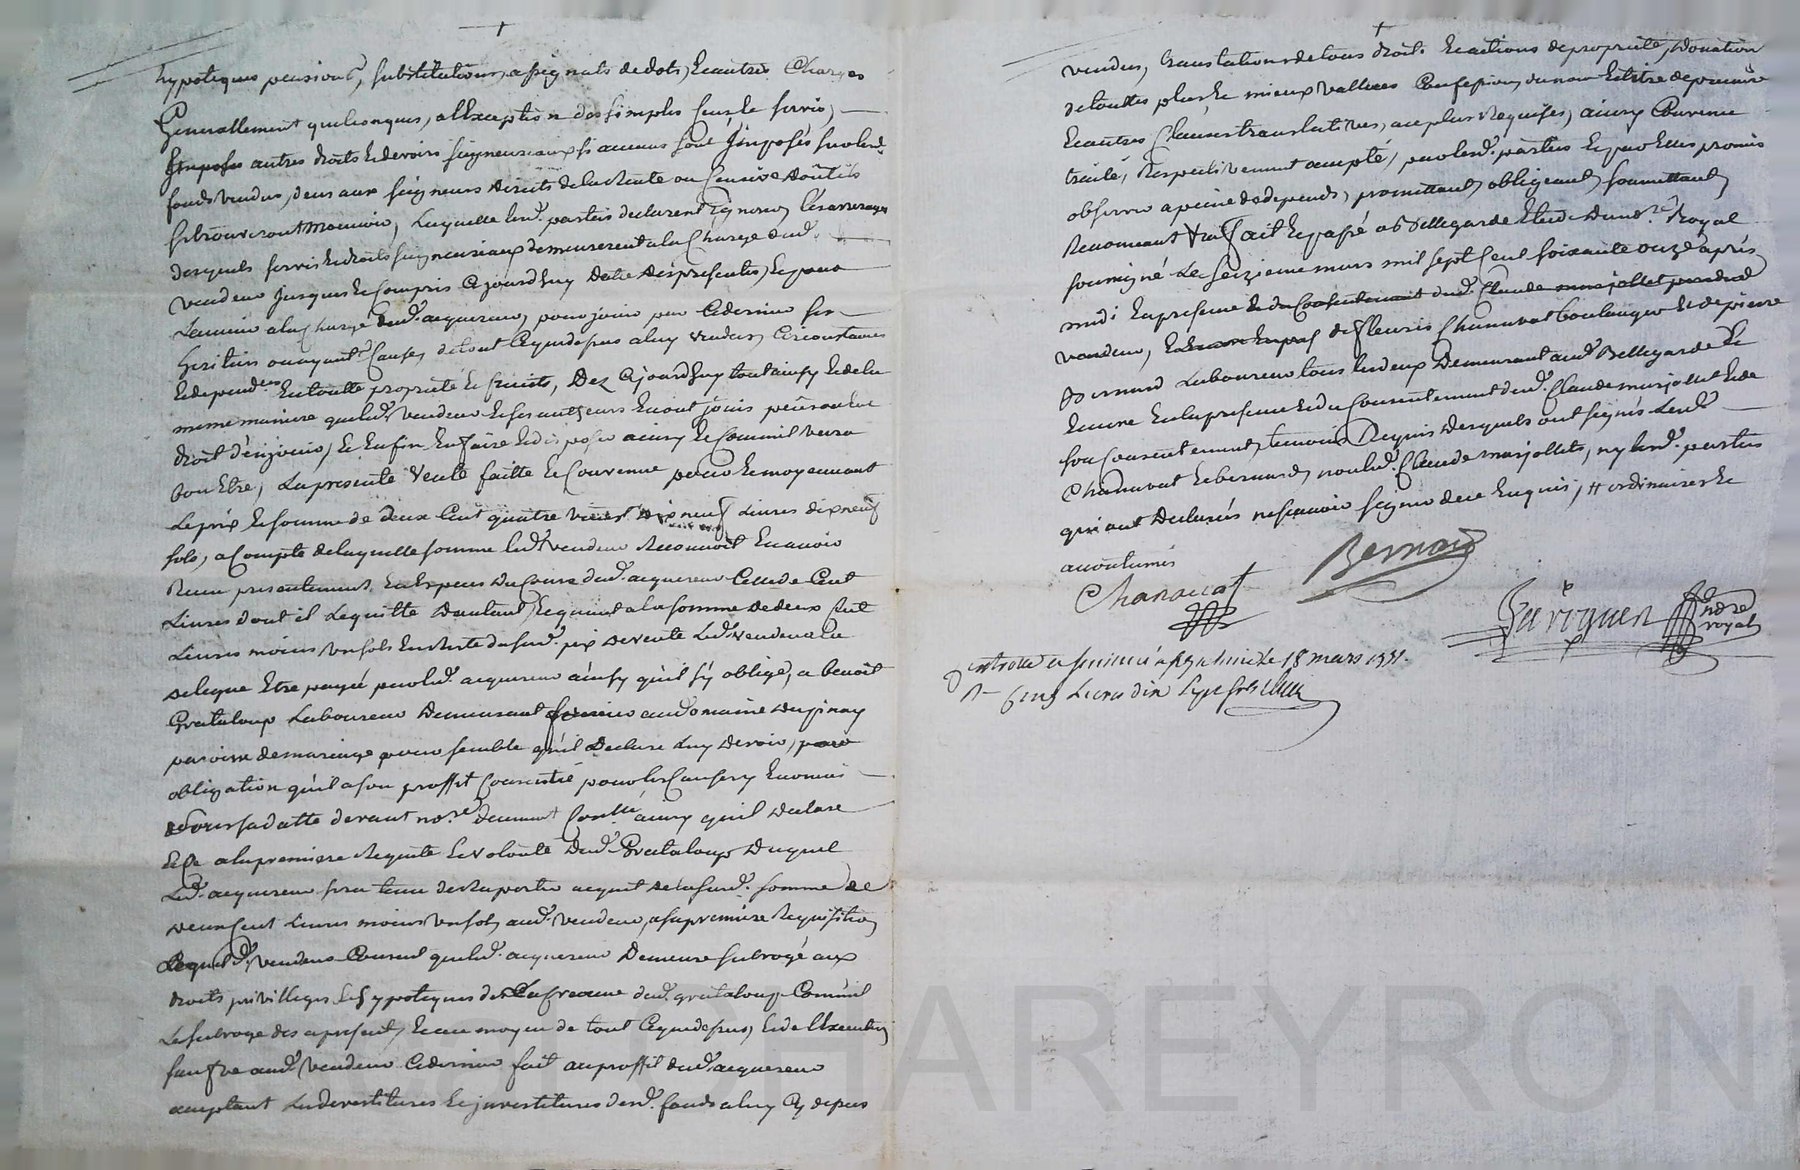 hypoteques pensions, substitutions, assignats de dots, & autres Charges
Generallement quelconques, a l'Exception des simples Cens, le servis,
Imposés autres droits & devoirs seigneuriaux si aucuns sont Imposés sur lesd.
fonds vendus, deus aux seigneurs directs de la Rente ou Censive dont ils
se trouveront mouvoir, laquelle lesd. parties declarent Ignorer, les arrerages
desquels servis & droits seigneuriaux demeureront a la Charge dud.
vendeur Jusques & Compris Cejourd'huy datte des presentes, & pour
l'avenir a la Charge dud. acquereur, pour jouir par Ce dernier ses
heritiers ou ayant Causes, de tout Ce que dessus a luy vendus, Circonstances
& dependces En toutte propriété & fruits, Dez Cejourd'huy tout ainsy & de la
meme maniere que led. vendeur & ses autheurs En ont jouis peu ou Eu
droit d'en jouir, & Enfin En faire & disposer ainsy & Comm'il verra
bon Etre, La presente vente faitte & Convenue pour & moyennant
Le prix & somme de deux Cent quatre vingt dix neuf Livres dix neuf
sols, a Compte de laquelle somme led. vendeur Reconnoit En avoir
Reçu presentement En Especes du Cours dud. acquereur Celle de Cent
Livres dont il Le quitte d'autant, & quant a la somme de deux Cent
Livres moins un sols En Reste du susd. prix de vente Led. vendeur l'a
delegue Etre payée par led. acquereur ainsy qu'il s'y oblige, a benoit
Grataloup Laboureur Demeurant au domaine Dupinay
paroisse de maringe pour semble qu'il Declare Luy devoir, par
obligation qu'il a son proffit Consentie pour les Causes y Enoncées
& sous sa datte devant nore. deument Conllé ainsy qu'il declare
& Ce a la premiere Requete & volonté Dud. Grataloup Duquel
Led. acquereur sera tenu de Raporter acquit de la susd. somme de
deux Cent Livres moins un sols, aud. vendeur, a sa premiere Requisition
Lequel d. vendeur Consent que led. acquereur Demeure subrogé aux
droits privilleges & hypoteques de la Creance dud. grataloup Comm'il
Le subroge des a present, & au moyen de tout Ce que dessus, & de l'Execution
sauf Ve aud. vendeur Ce dernier fait au proffit dud. acquereur
acceptant Les devestitures & jnvestitures desd. fonds a luy Cy depus
vendus, translations de tous droits & actions de propriété, Donation
de touttes plus & mieux vallues Confession du nom & titre de precaire
& autres Clauses translatives, au plus Requises, ainsy Convenu
traité, Respectivement accepté, par lesd. parties & par Elles promis
observer a peine de depends, promettant, obligeant, soumettant,
Renonceant &ra fait & passé a Bellegarde Etude du nore. Royal
soussigné Le seizieme mars mil sept Cent soixante onze après
midi En presence & du Consentement dud. Claude marjollet pere dud.
vendeur, & Encore En pres de fleuris Chanavat boulanger & de pierre
Bernard Laboureur tous lesdeux Demeurant aud. Bellegarde &
Encore En la presence & du Consentement dud. Claude marjollet & de
son Consentement, temoins Requis desquels ont signés Lesd.
Chanavat & bernard, non led. Claude marjollets, ny lesd. parties
qui ont Declarés ne sçavoir signer de ce Enquis, # ordinaires &
accoutumés
Chanavat Bernard
nore royal
Controllé a le 18 mars 1771.
R. Cinq Livres dix sept sols